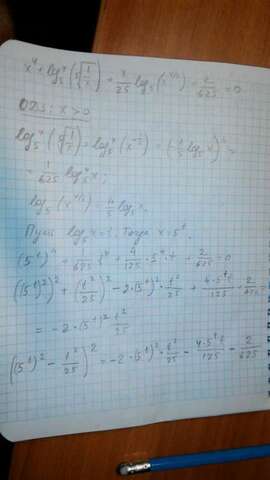 x⁴ + log₅⁴(⁵√(1/x)) + x/25 log₅(x^(4/5)) + 2/625 = 0
ОДЗ: x > 0
log₅⁴(⁵√(1/x)) = log₅⁴(x^(-1/5)) = (-1/5 log₅x)⁴ =
= 1/625 log₅⁴x;
log₅(x^(4/5)) = 4/5 log₅x.
Пусть log₅x = t, тогда x = 5^t.
(5^t)⁴ + 1/625 t⁴ + 4/125 · 5^t · t + 2/625 = 0
((5^t)²)² + (t²/25)² - 2·(5^t)² · t²/25 + 4·5^t t/125 + 2/625
= -2·(5^t)² t²/25
((5^t)² - t²/25)² = -2·(5^t)² · t²/25 - 4·5^t t/125 - 2/625